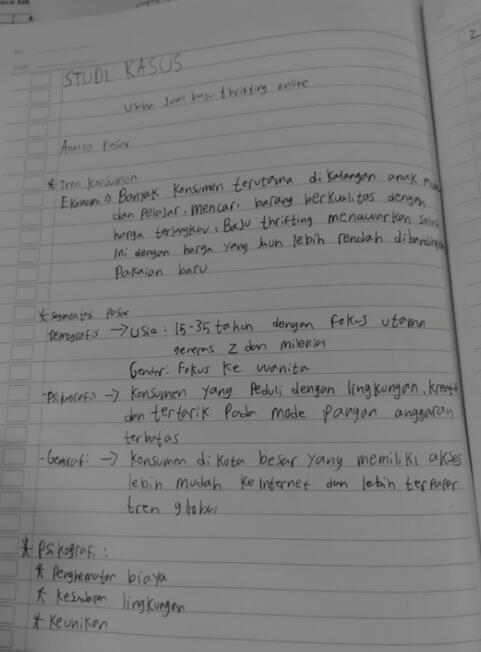 STUDI KASUS
Usaha Jual baju thrifting online
Analisa Pasar
* Tren Konsumen
Ekonomi => Banyak konsumen terutama di kalangan anak
dan pelajar. mencari barang berkualitas dengan
harga terjangkau. Baju thrifting menawarkan
ini dengan harga yang jauh lebih rendah
Pakaian baru
* Segmentasi Pasar
Demografis -> Usia : 15-35 tahun dengan fokus utama
Z dan milenial
Gender : Fokus ke wanita
- Psikografis -> Konsumen yang Peduli dengan lingkungan,
dan tertarik Pada mode anggaran
terbatas
- Geografi -> Konsumen di kota besar yang memiliki akses
lebih mudah ke internet dan lebih terpapar
tren global
* Psikografi :
* Penghematan biaya
* Kesadaran lingkungan
* Keunikan
2